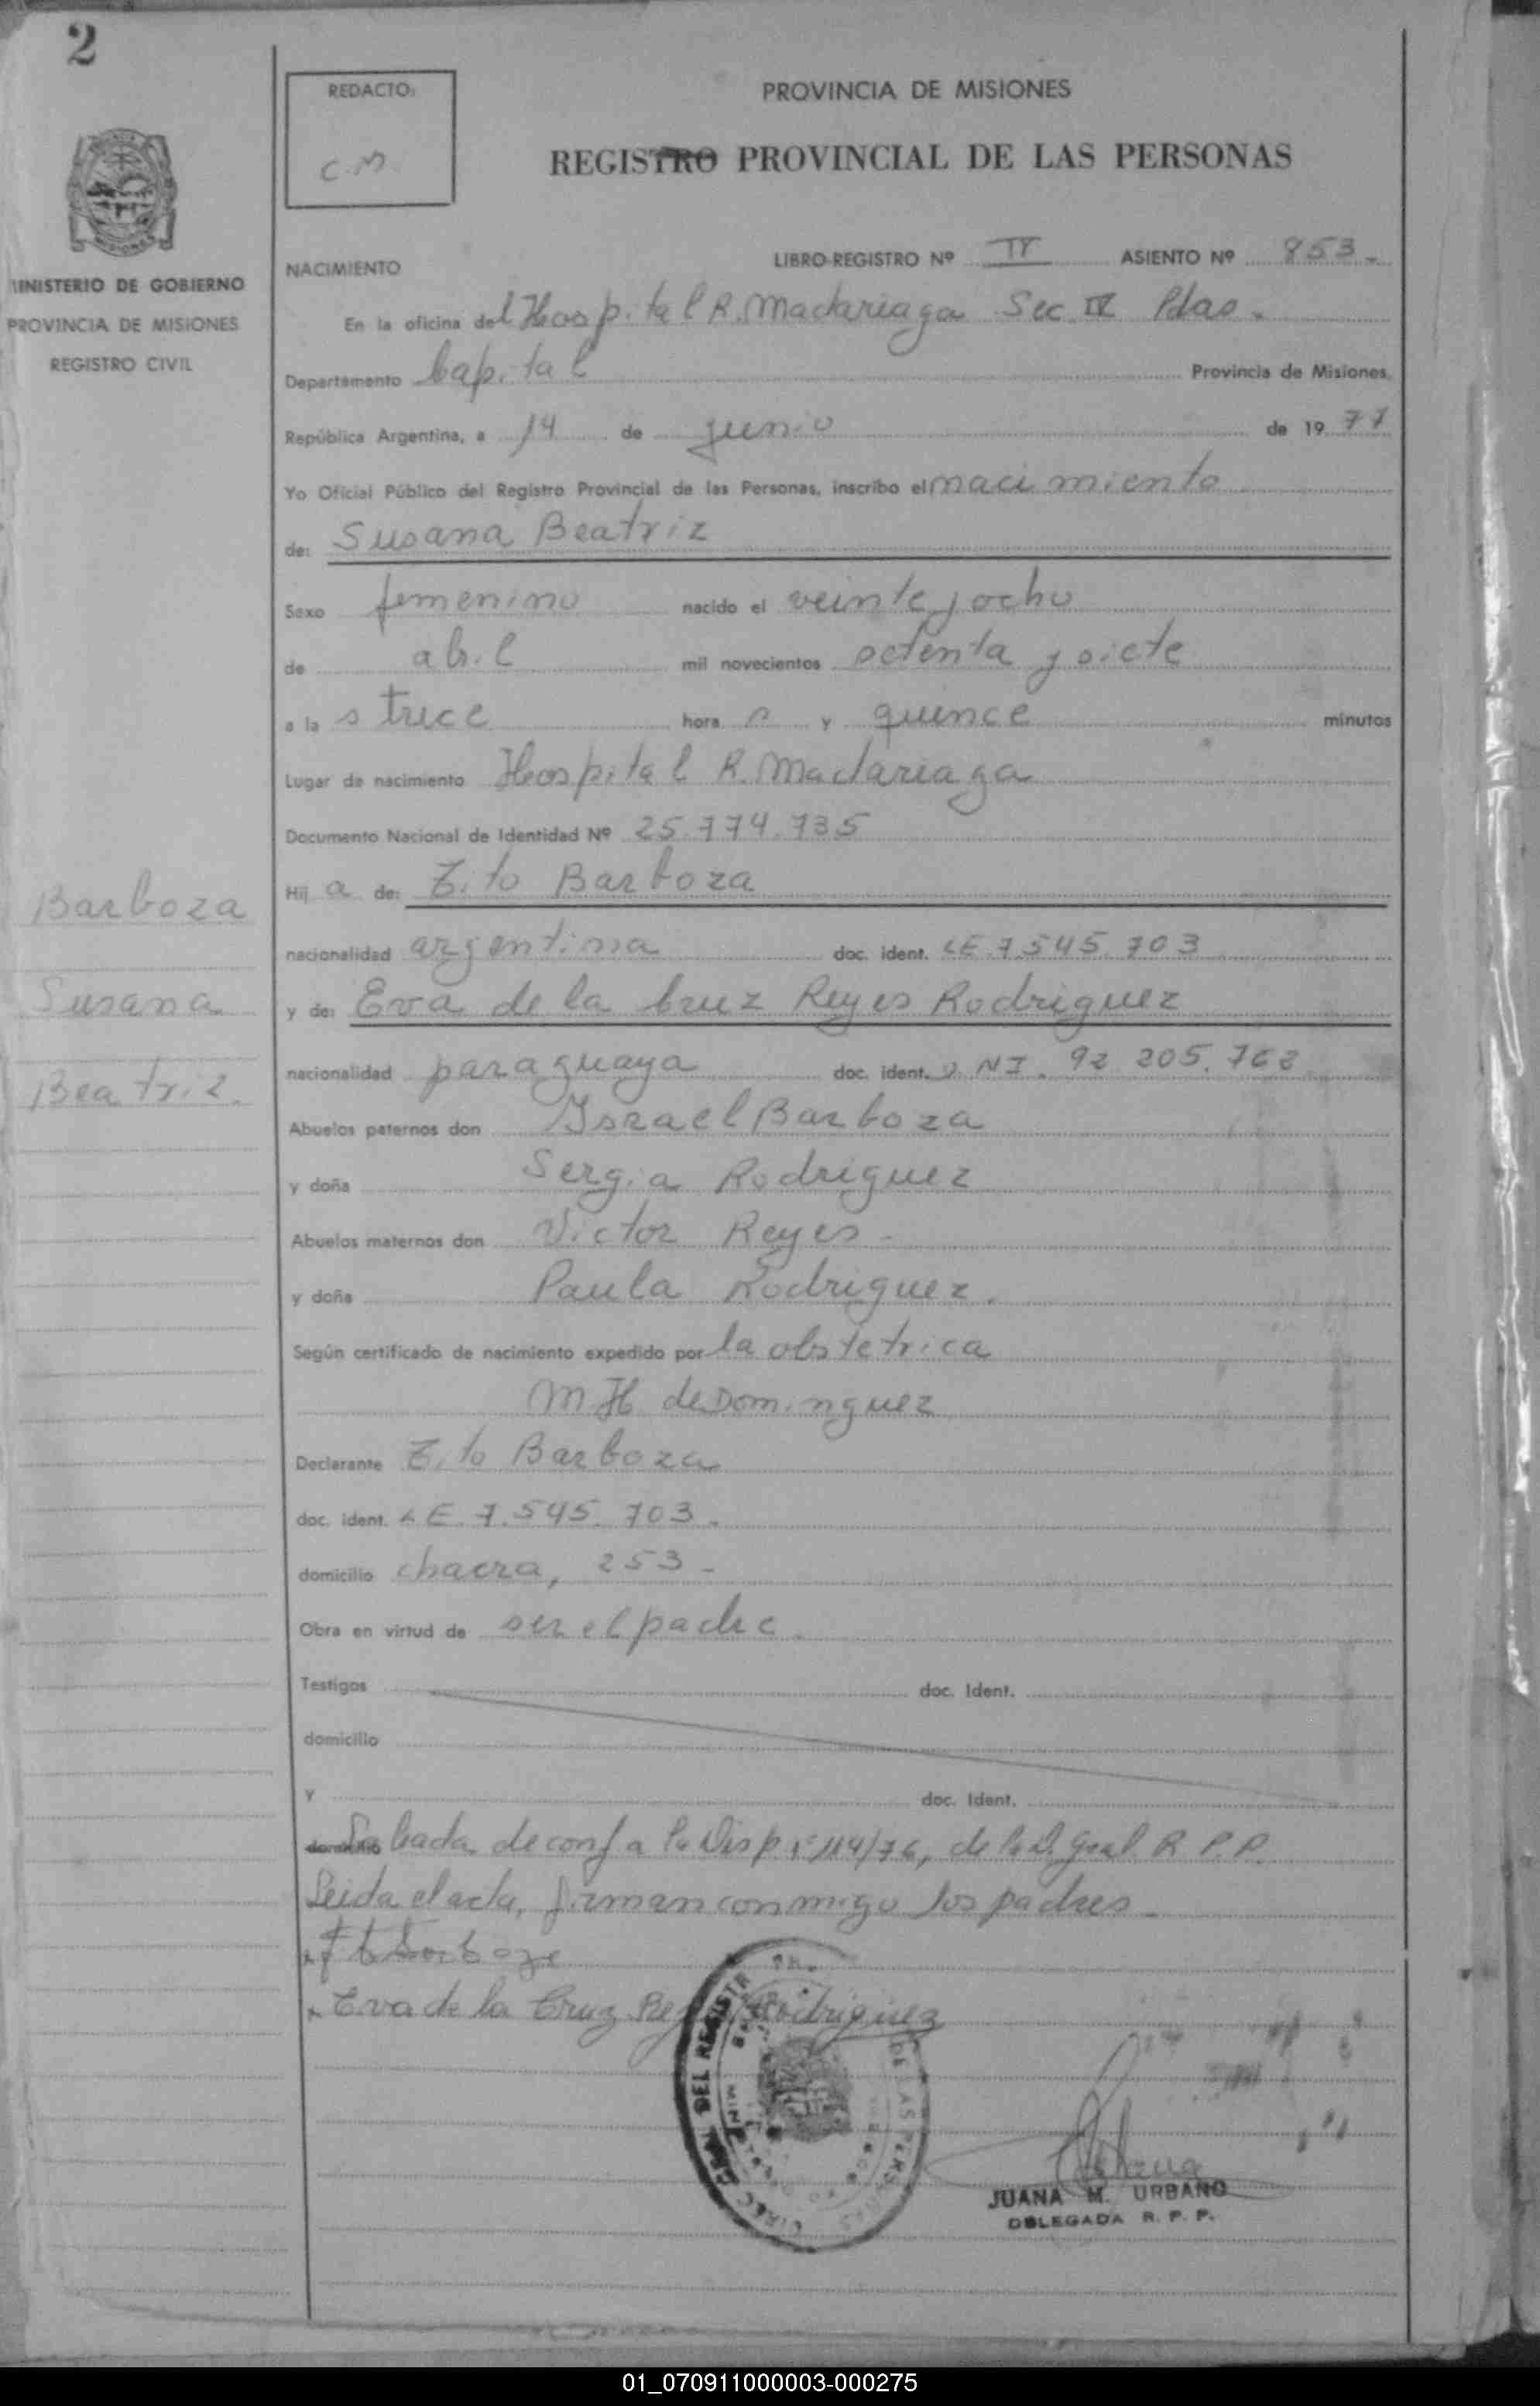 2
REDACTO:
C.M.
PROVINCIA DE MISIONES
REGISTRO PROVINCIAL DE LAS PERSONAS
MINISTERIO DE GOBIERNO
PROVINCIA DE MISIONES
REGISTRO CIVIL
NACIMIENTO
LIBRO-REGISTRO Nº II ASIENTO Nº 853.-
En la oficina del Hospital R. Madariaga Sec. IV Pdas.
Departamento Capital Provincia de Misiones,
República Argentina, a 14 de junio de 1977
Yo Oficial Público del Registro Provincial de las Personas, inscribo el nacimiento
de: Susana Beatriz
Sexo femenino nacido el veinte y ocho
de abril mil novecientos setenta y siete
a las trece horas y quince minutos
Lugar de nacimiento Hospital R. Madariaga
Documento Nacional de Identidad Nº 25.774.735
Hija de: Tito Barboza
nacionalidad argentina doc. ident. LE 7.545.703
y de: Eva de la Cruz Reyes Rodriguez
nacionalidad paraguaya doc. ident. D.N.I. 92.205.762
Barboza
Susana
Beatriz.
Abuelos paternos don Israel Barboza
y doña Sergia Rodriguez
Abuelos maternos don Victor Reyes -
y doña Paula Rodriguez.
Según certificado de nacimiento expedido por la obstetrica
M.H. de Dominguez
Declarante Tito Barboza
doc. ident. LE. 7.545.703.
domicilio chacra, 253 -
Obra en virtud de ser el padre.
Testigos doc. Ident.
domicilio
y doc. Ident.
domicilio de conf a la Disp nº 114/76, de la D. Gral R.P.P.
Leida el acta, firman conmigo los padres -
Barboza
Eva de la Cruz Reyes Rodriguez
DEL REGISTR DE LAS PERSONAS
JUANA M. URBANO
DELEGADA R. P. P.
01_070911000003-000275